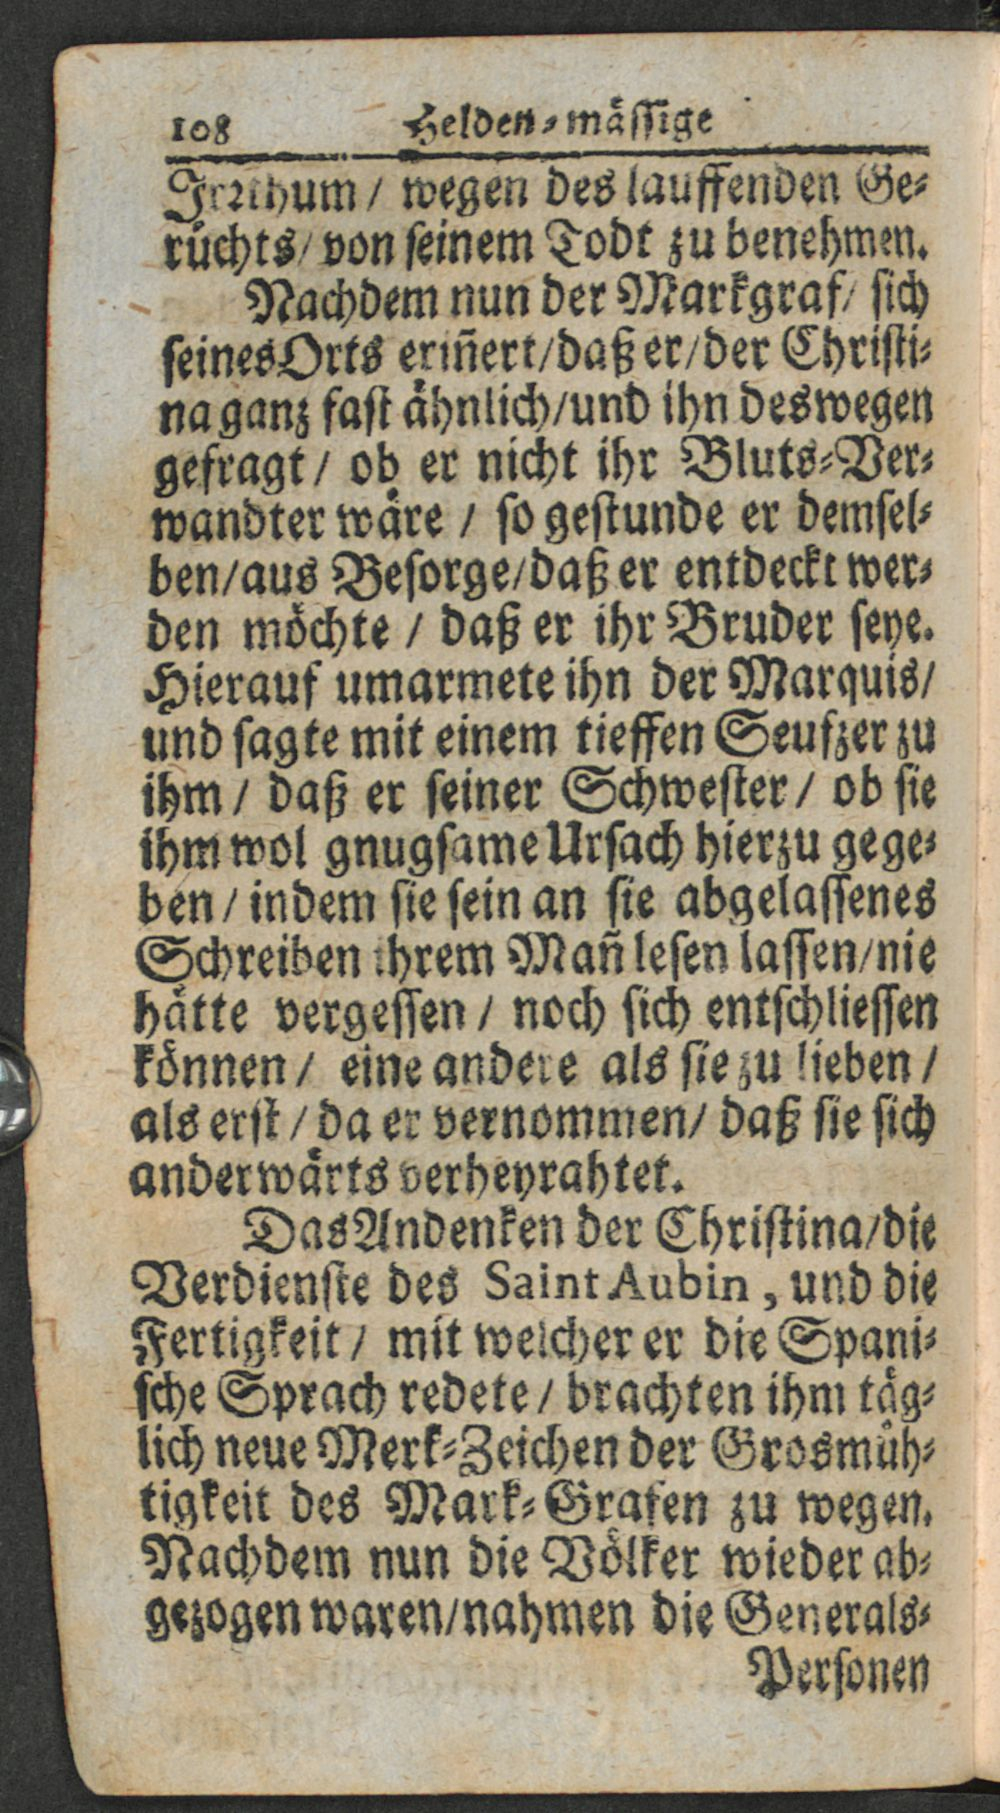 108 Helden-mässige
Irꝛthum / wegen des lauffenden Ge-
rüchts / von seinem Todt zu benehmen.
Nachdem nun der Markgraf / sich
seines Orts erin̄ert / daß er / der Christi-
na ganz fast ähnlich / und ihn deswegen
gefragt / ob er nicht ihr Bluts-Ver-
wandter wäre / so gestunde er demsel-
ben / aus Besorge / daß er entdeckt wer-
den möchte / daß er ihr Bruder seye.
Hierauf umarmete ihn der Marquis /
und sagte mit einem tieffen Seufzer zu
ihm / daß er seiner Schwester / ob sie
ihm wol gnugsame Ursach hierzu gege-
ben / indem sie sein an sie abgelassenes
Schreiben ihrem Man̄ lesen lassen / nie
hätte vergessen / noch sich entschliessen
können / eine andere als sie zu lieben /
als erst / da er vernommen / daß sie sich
anderwärts verheyrahtet.
Das Andenken der Christina / die
Verdienste des Saint Aubin, und die
Fertigkeit / mit welcher er die Spani-
sche Sprach redete / brachten ihm täg-
lich neue Merk-Zeichen der Grosmüh-
tigkeit des Mark-Grafen zu wegen.
Nachdem nun die Völker wieder ab-
gezogen waren / nahmen die Generals-
Personen